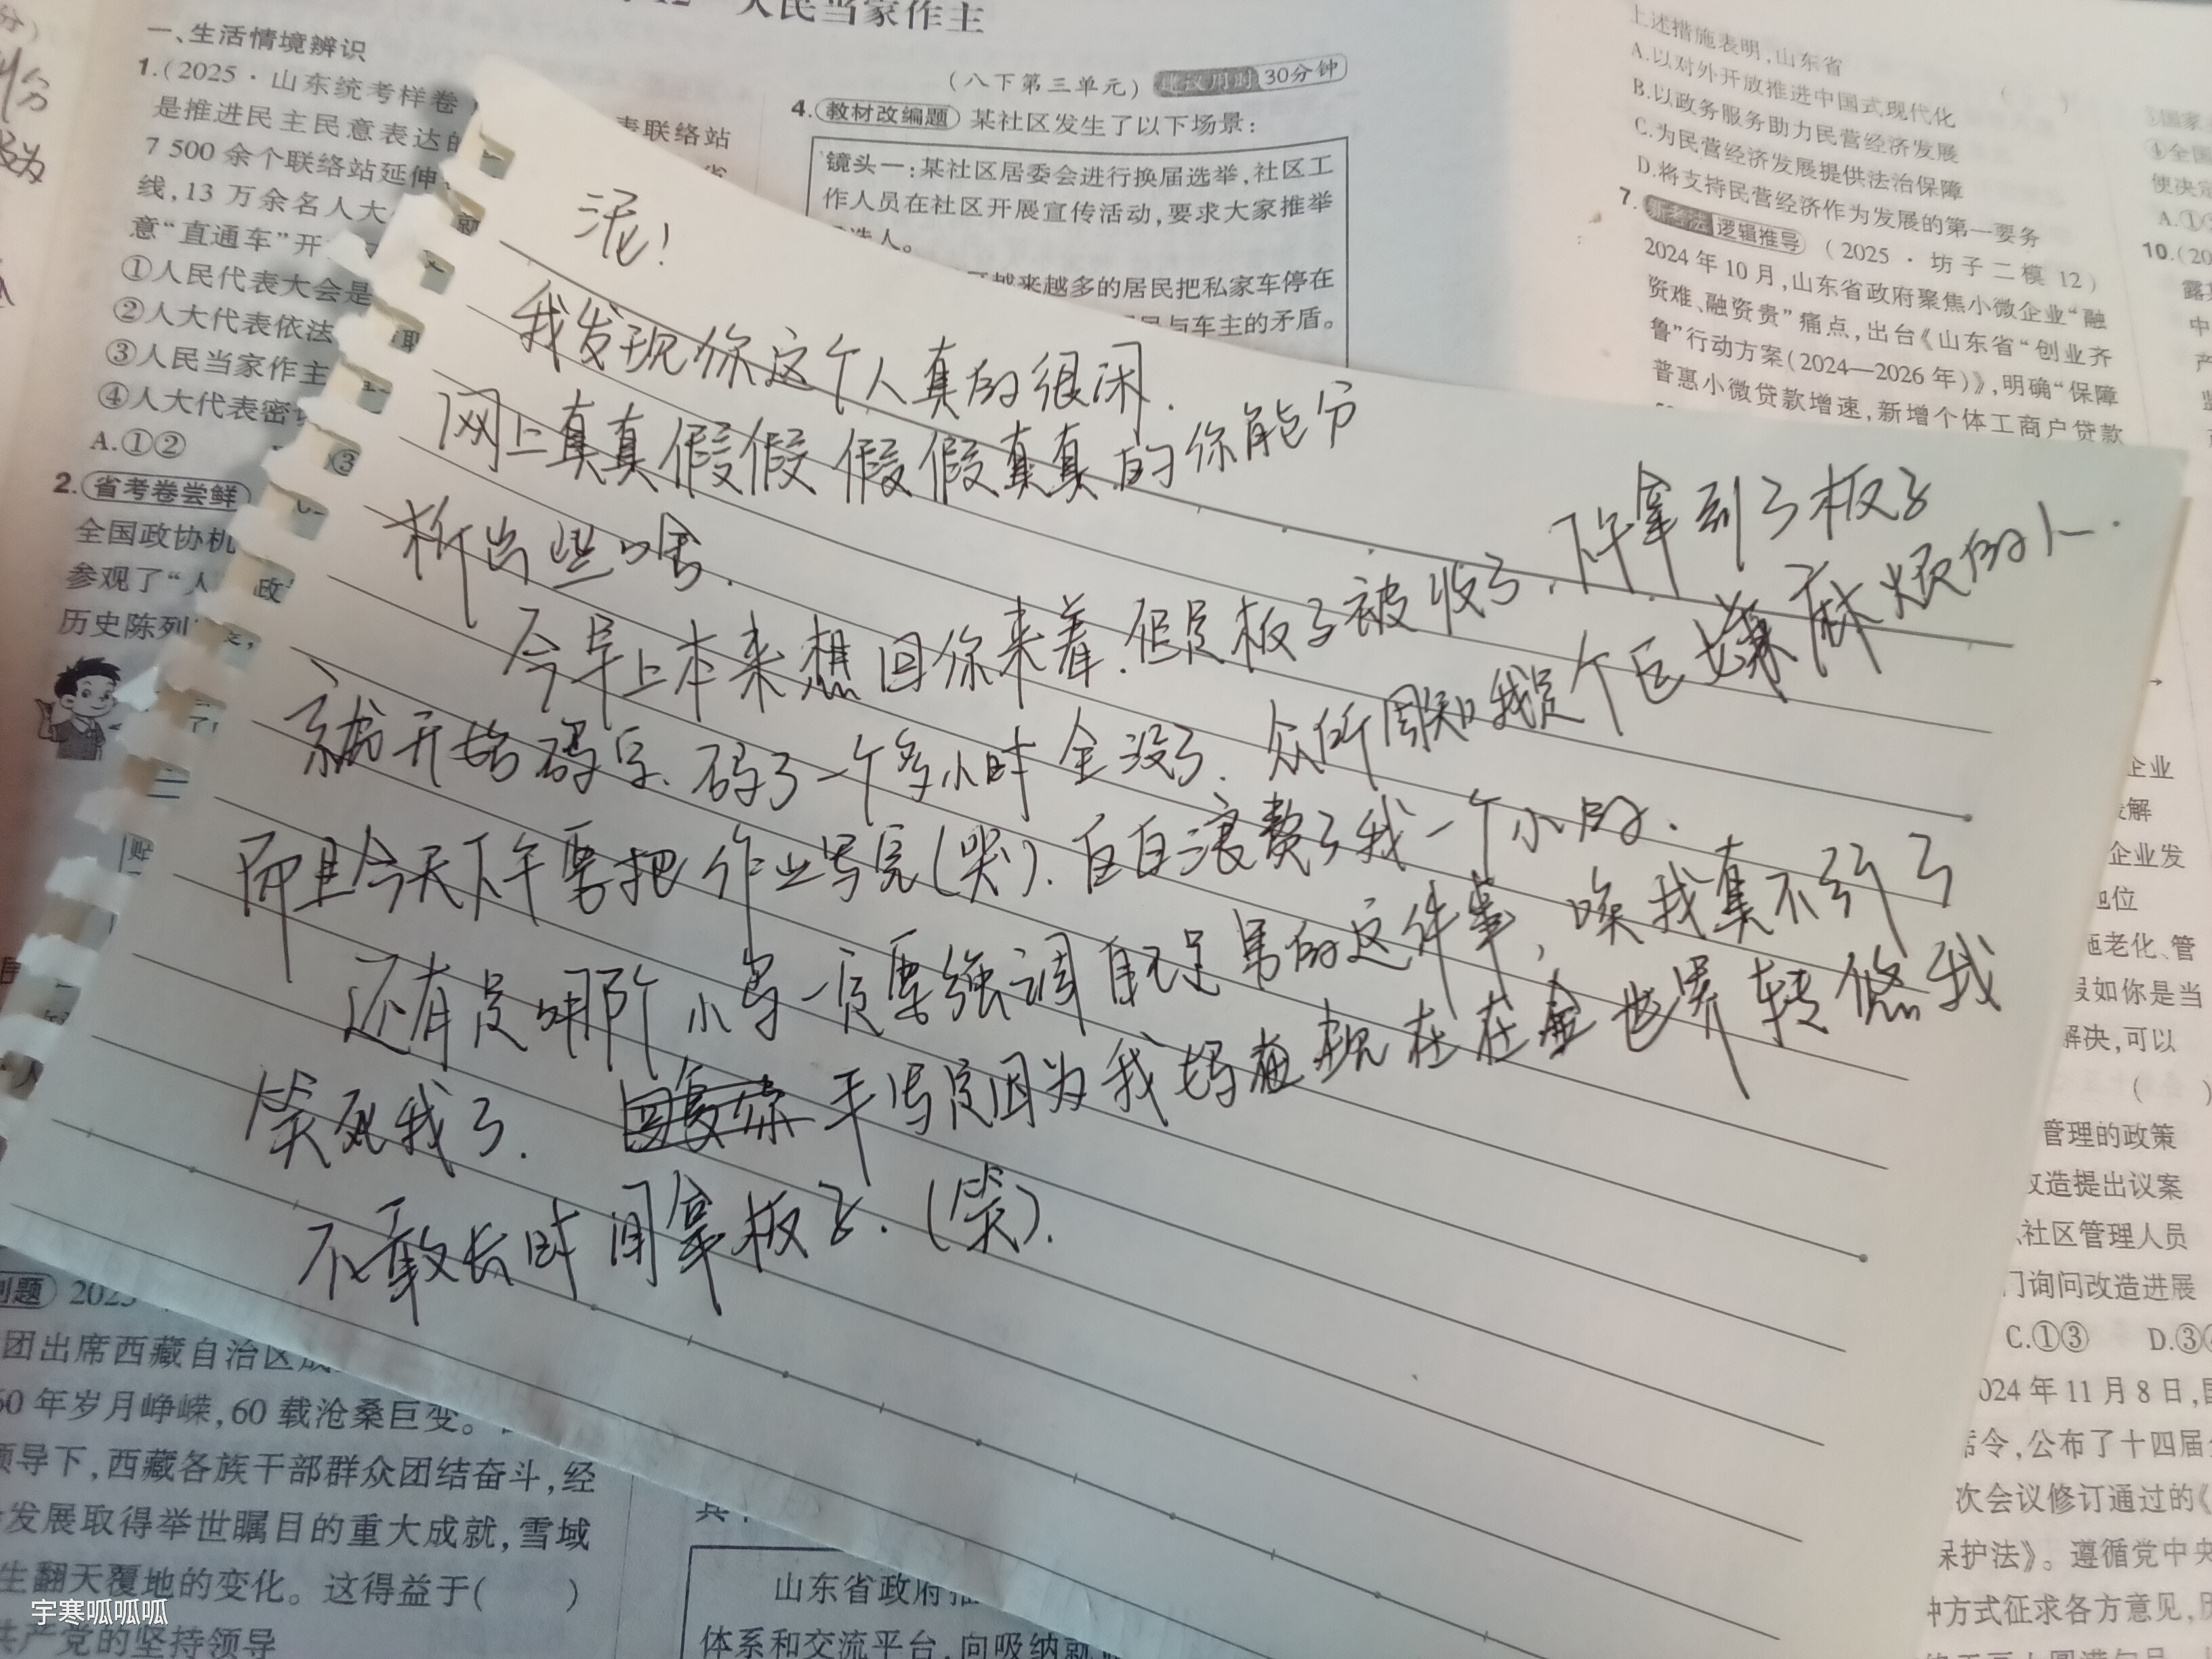 人民当家作主
(八下第三单元) 建议用时 30分钟
一、生活情境辨识
1.(2025·山东统考样卷
表联络站
是推进民主民意表达的
7 500 余个联络站延伸
线,13 万余名人大
意“直通车”开
①人民代表大会是
②人大代表依法
③人民当家作主
④人大代表密
A.①②
③
2.省考卷尝鲜
全国政协机
参观了“人
历史陈列
4.教材改编题 某社区发生了以下场景:
镜头一:某社区居委会进行换届选举,社区工
作人员在社区开展宣传活动,要求大家推举
选人。
越来越多的居民把私家车停在
与车主的矛盾。
上述措施表明,山东省
A.以对外开放推进中国式现代化
B.以政务服务助力民营经济发展
C.为民营经济发展提供法治保障
D.将支持民营经济作为发展的第一要务
7.新考法 逻辑推导 (2025·坊子二模 12)
2024 年 10 月,山东省政府聚焦小微企业“融
资难、融资贵”痛点,出台《山东省“创业齐
鲁”行动方案(2024—2026 年)》,明确“保障
普惠小微贷款增速,新增个体工商户贷款
10.(20
泥!
我发现你这个人真的很闲.
网上真真假假假假真真的你能分
析出些啥.
今早上本来想回你来着.但是板子被收了.下午拿到了板子
就开始码字.码了一个多小时全没了.众所周知我是个巨嫌麻烦的人.
而且今天下午要把作业写完(哭).白白浪费了我一个小时.
还有是哪阶小写一直要强调自己是男的这件事,唉我真不行了
笑死我了. 手写是因为我妈在现在在全世界转悠我
不敢长时间拿板子.(笑).
企业
企业发
地位
施老化、管
假如你是当
解决,可以
管理的政策
改造提出议案
社区管理人员
门询问改造进展
C.①③ D.③
024 年 11 月 8 日,
席令,公布了十四届
次会议修订通过的《
保护法》。遵循党中央
种方式征求各方意见,
创题 202
团出席西藏自治区成
60 年岁月峥嵘,60 载沧桑巨变。
领导下,西藏各族干部群众团结奋斗,经
发展取得举世瞩目的重大成就,雪域
生翻天覆地的变化。这得益于( )
共产党的坚持领导
山东省政府推
体系和交流平台,向吸纳就
宇寒呱呱呱